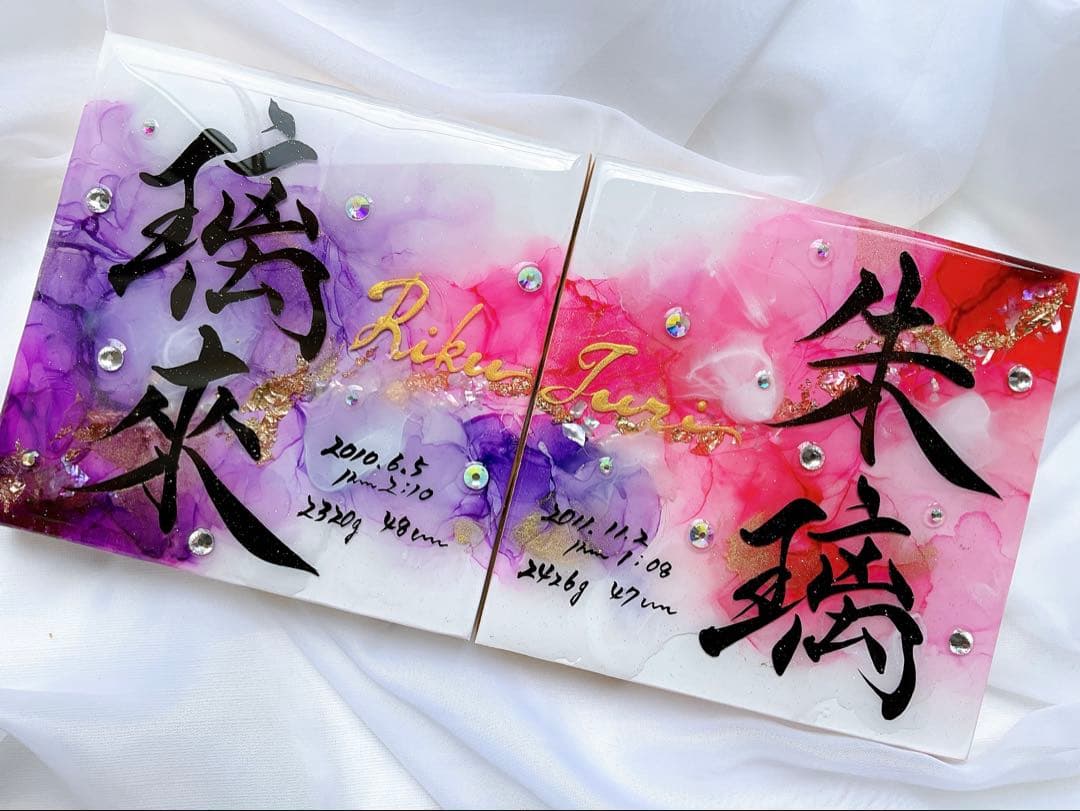 璃來
Riku
2010.6.5
pm 2:10
2320g 48cm
朱璃
Juri
2011.11.2
pm 1:08
2426g 47cm